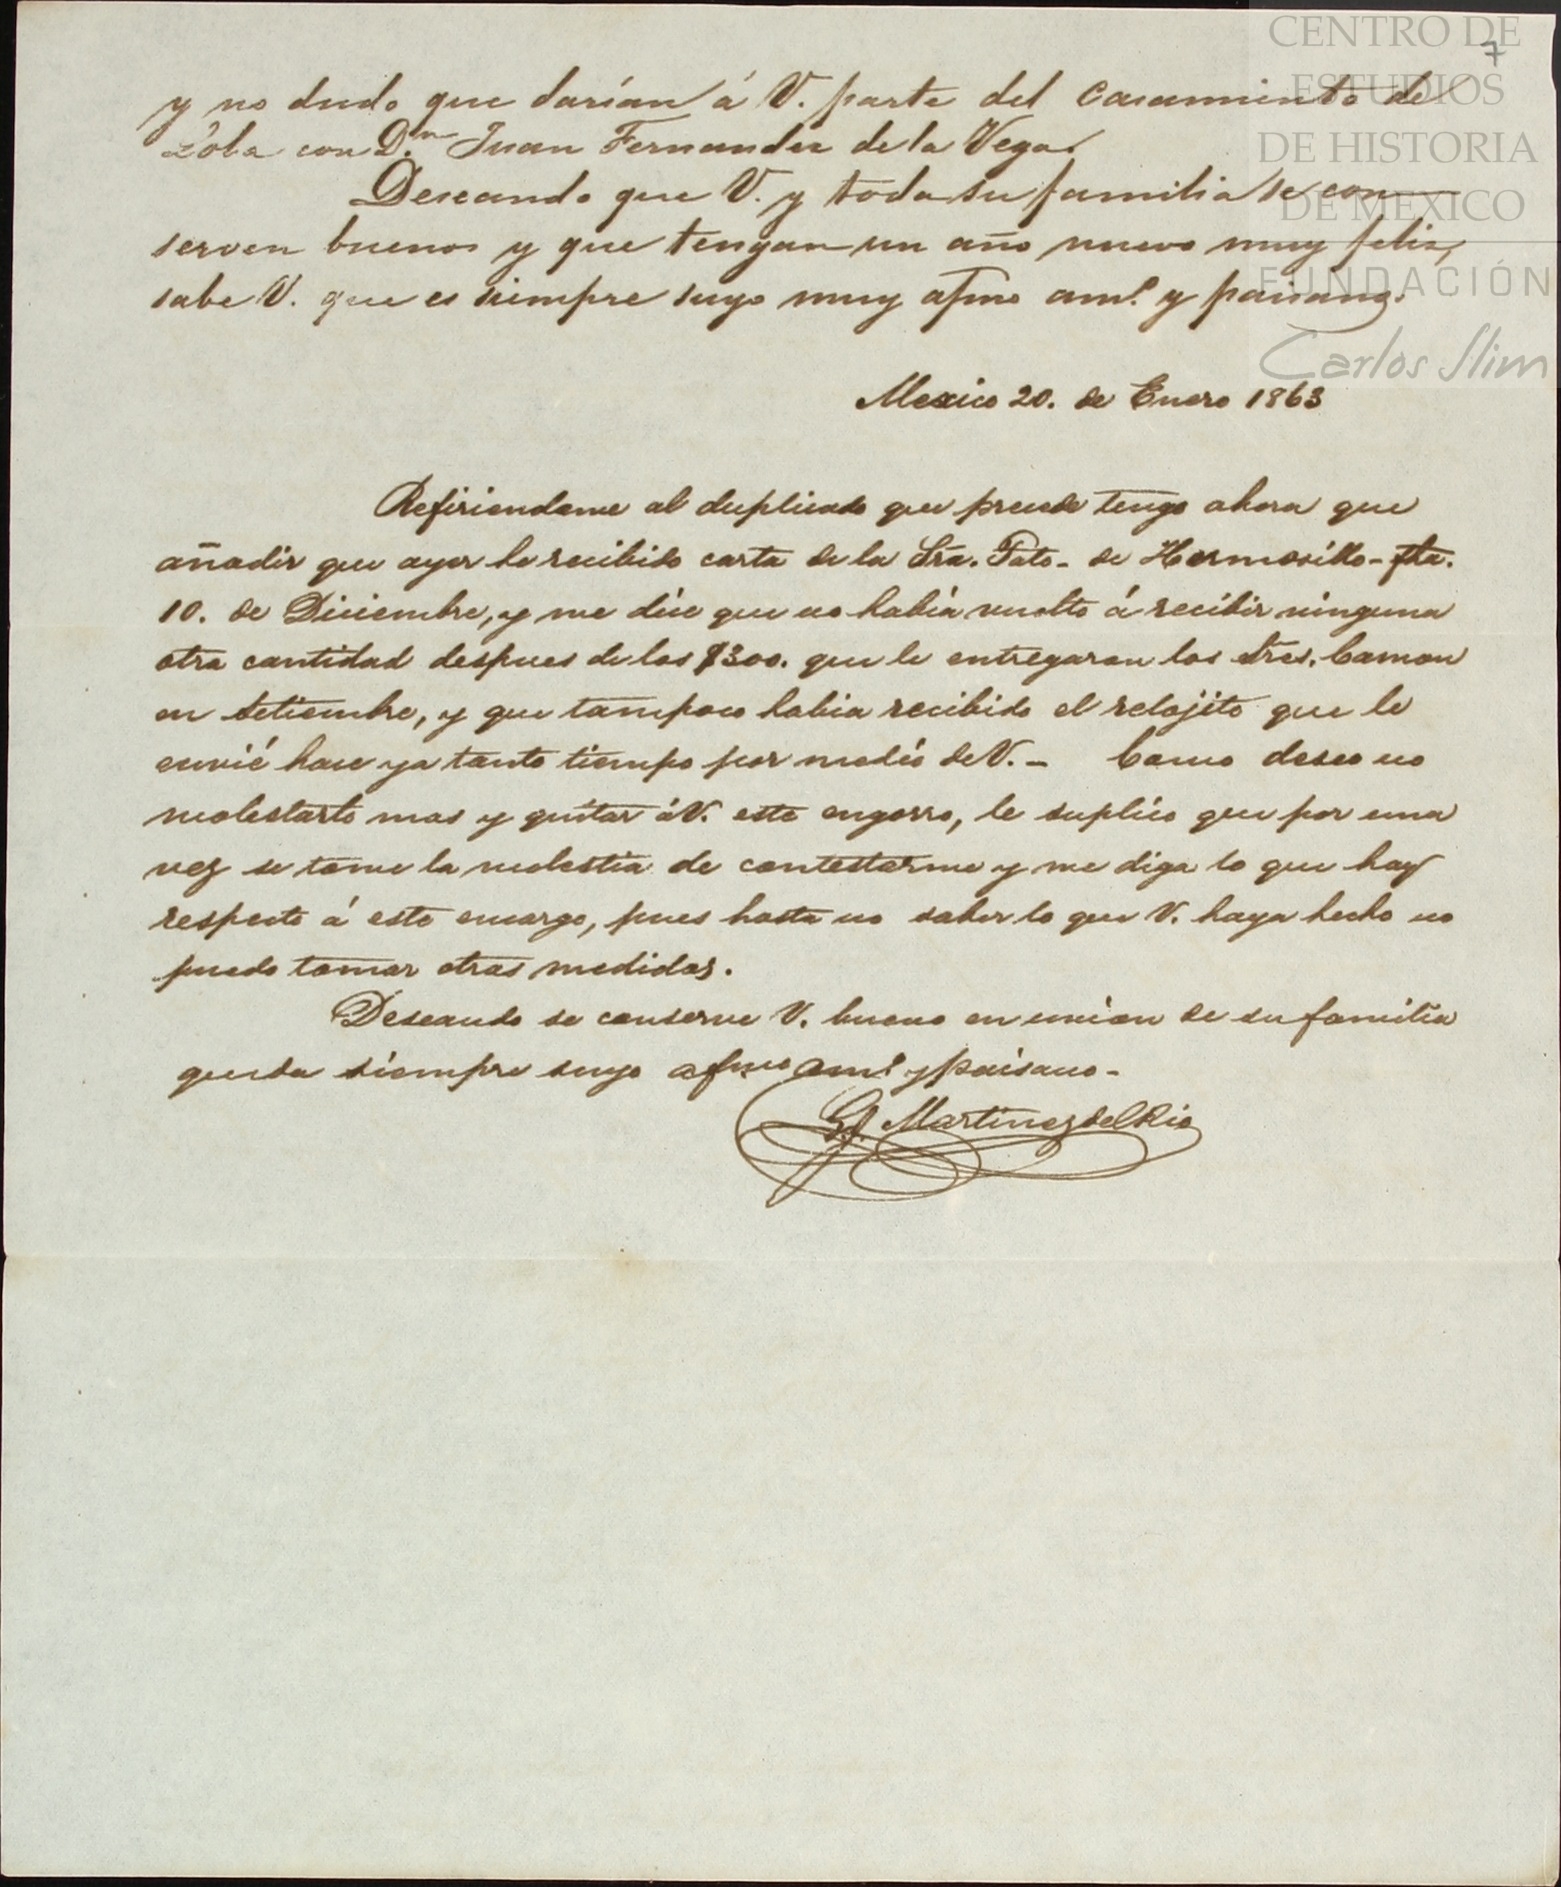 7
CENTRO DE
ESTUDIOS
DE HISTORIA
DE MEXICO
FUNDACIÓN
Carlos Slim
y no dudo que darían á V. parte del Casamiento de
con D.n Juan Fernandez de la Vega.
Deseando que V. y toda su familia se con-
serven buenos y que tengan un año nuevo muy feliz,
sabe V. que es siempre suyo muy afmo am.o y paisano.
Mexico 20. de Enero 1863
Refiriendome al duplicado que precede tengo ahora que
añadir que ayer he recibido carta de la Sra. Pato- de Hermosillo- fha.
10. de Diciembre, y me dice que no había vuelto á recibir ninguna
otra cantidad despues de los $300. que le entregaron los Sres. Camou
en Setiembre, y que tampoco habia recibido el relojito que le
envié hace ya tanto tiempo por medio de V. - Como deseo no
molestarlo mas y quitar á V. este engorro, le suplico que por una
vez se tome la molestia de contestarme y me diga lo que hay
respecto á este encargo, pues hasta no saber lo que V. haya hecho no
puedo tomar otras medidas.
Deseando se conserve V. bueno en union de su familia
queda siempre suyo afmo am.o y paisano-
Martinez del Rio